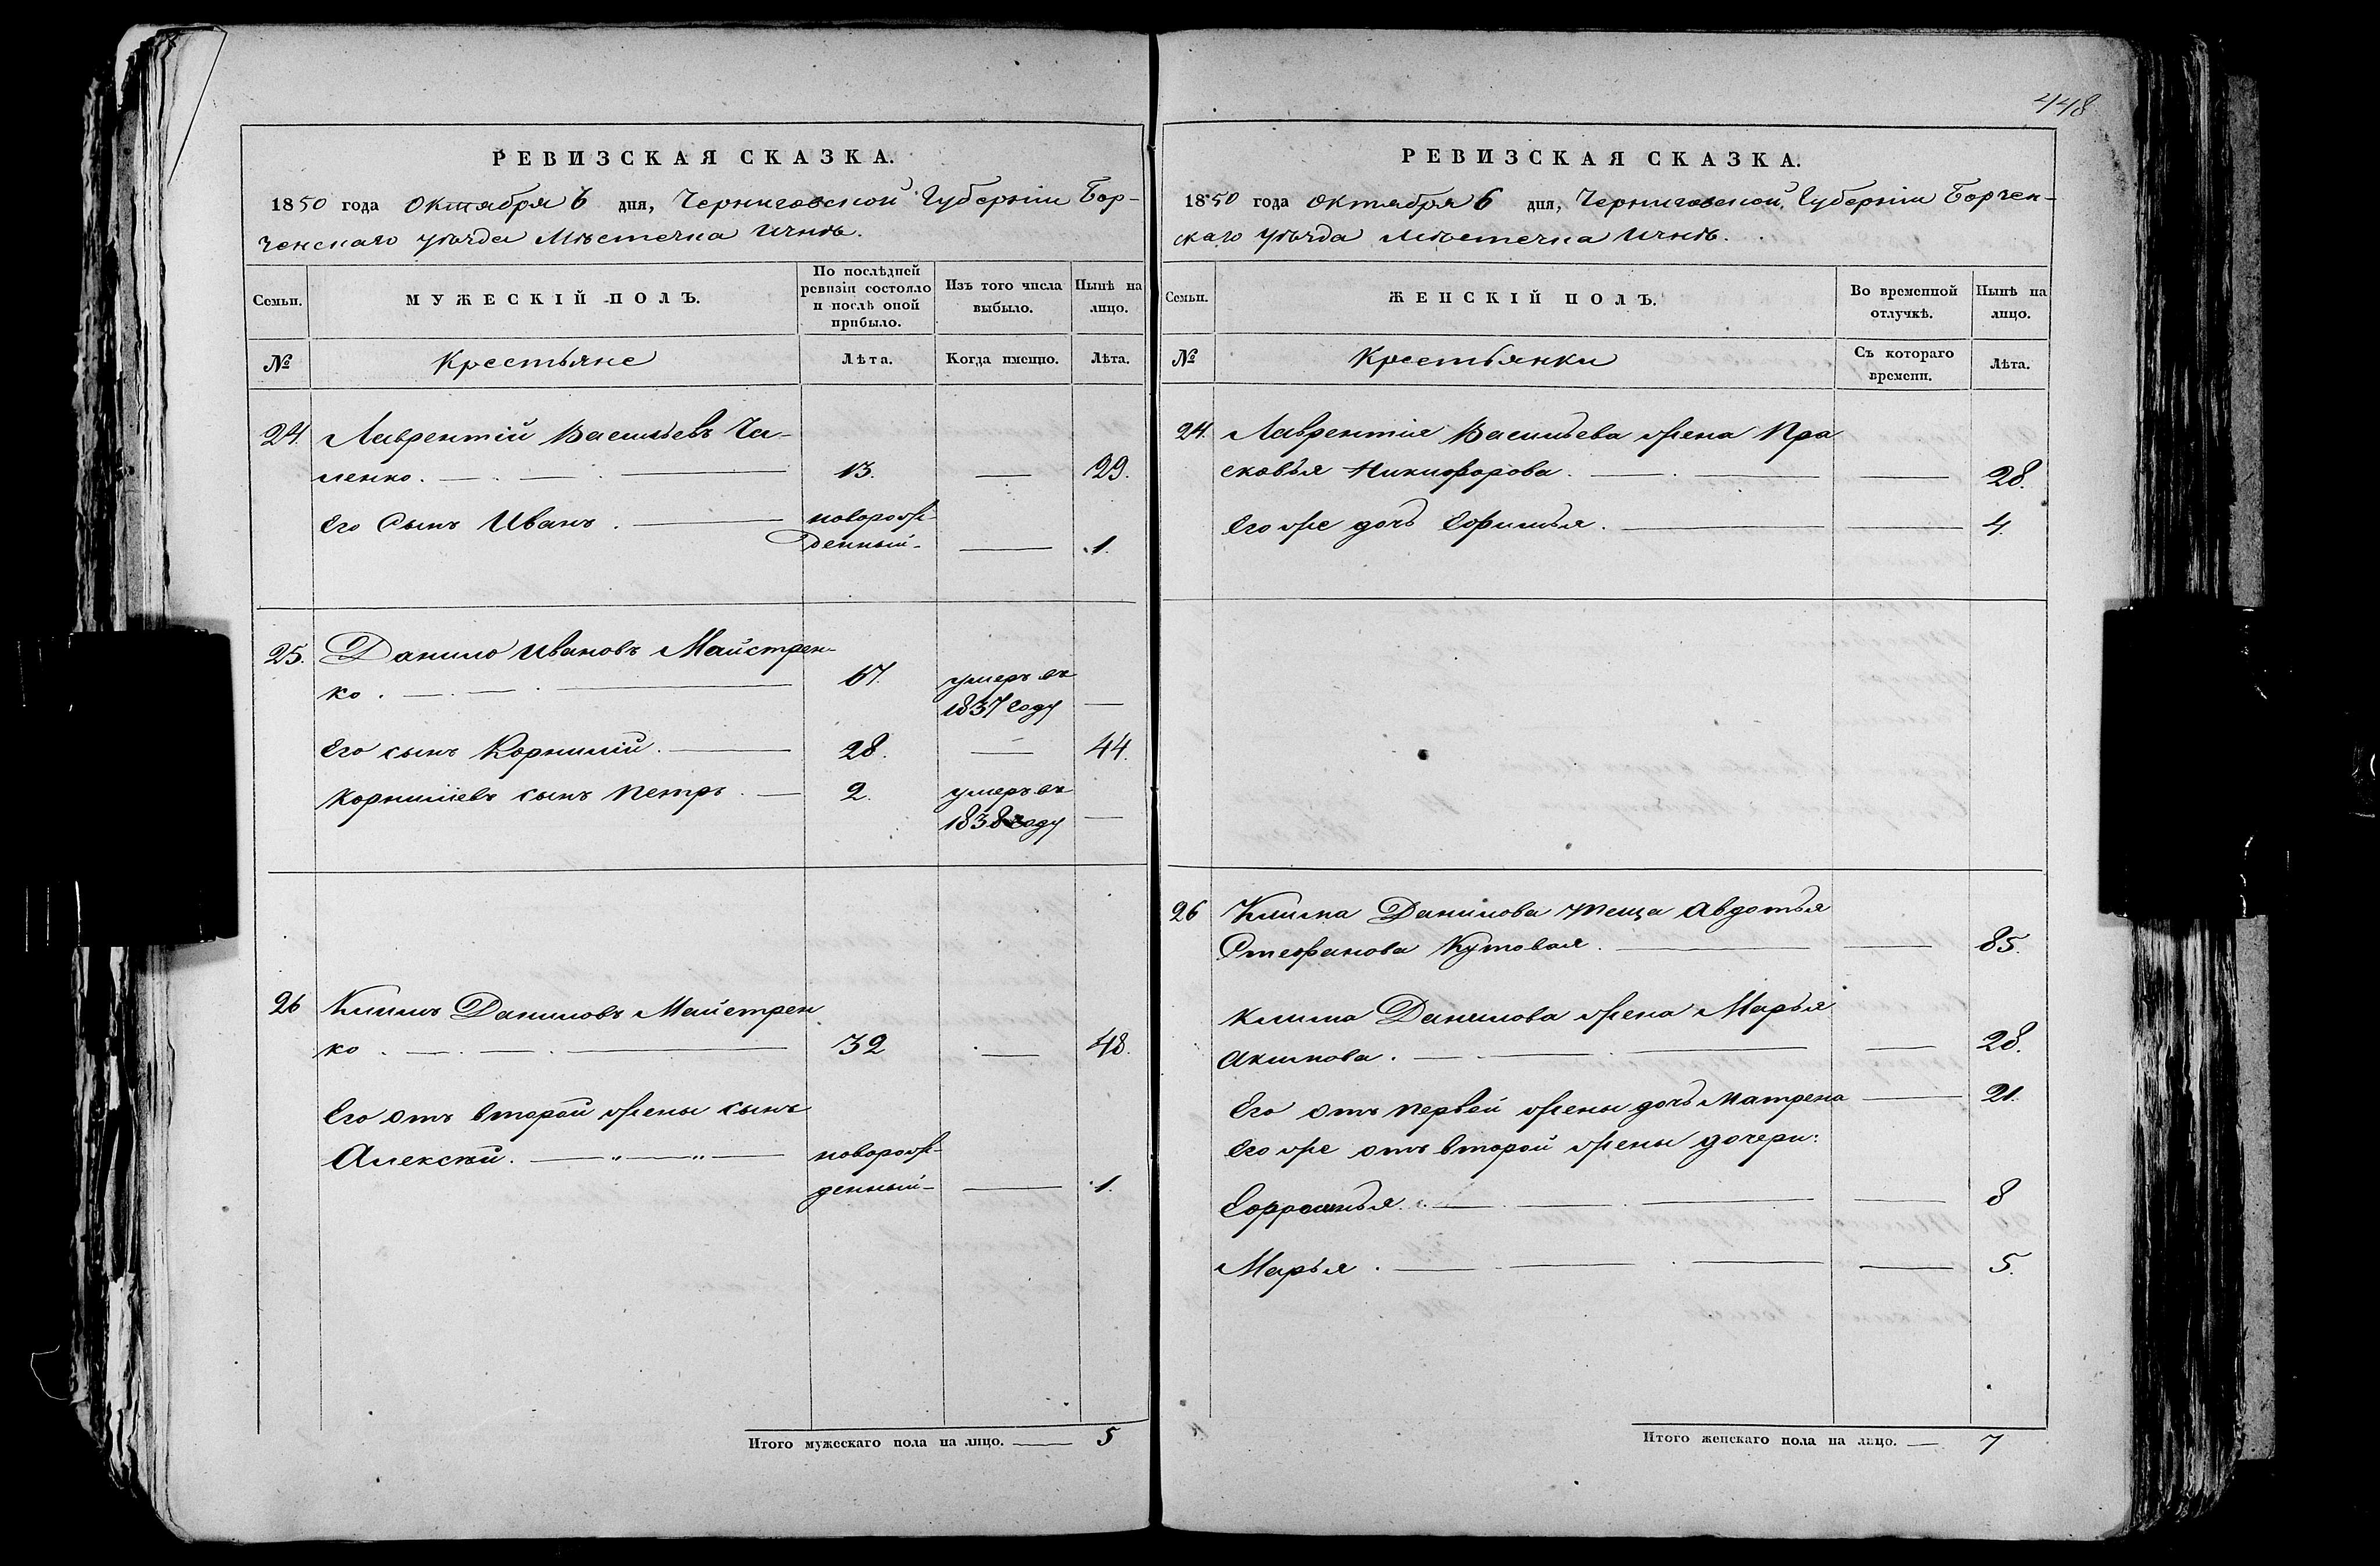 448
РЕВИЗСКАЯ СКАЗКА.
1850 года Октября 6 дня, Черниговской Губерніи Бор-
ченскаго уѣзда Мѣстечка Ичнѣ.
Семьи.
МУЖЕСКІЙ ПОЛЪ.
По послѣдней ревизіи состояло и послѣ оной прибыло.
Изъ того числа выбыло.
Нынѣ на лицо.
№
Крестьяне
Лѣта.
Когда именно.
Лѣта.
24. Лаврентій Васильевъ Ча-
ленко. 13. — 29.
Его Сынъ Иванъ. новорож-
денный — 1.
25. Данило Ивановъ Майстрен-
ко. 67. умеръ въ
1837 году —
Его сынъ Корнилій. 28. — 44.
Корниліевъ сынъ Петръ. — 2. умеръ въ
1838 году —
26 Климъ Даниловъ Майстрен
ко. 32 — 48.
Его отъ второй жены сынъ
Алексѣй. — „ — „ — новорож-
денный — 1.
Итого мужескаго пола на лицо. — 5
РЕВИЗСКАЯ СКАЗКА.
1850 года Октября 6 дня, Черниговской Губерніи Борчен-
скаго уѣзда Мѣстечка Ичнѣ.
Семьи.
ЖЕНСКІЙ ПОЛЪ.
Во временной отлучкѣ.
Нынѣ на лицо.
№
Крестьянки
Съ котораго времени.
Лѣта.
24. Лаврентія Васильева жена Пра
сковья Никифорова. — 28.
Его же дочь Ефимья. — 4.
26 Клима Данилова теща Авдотья
Стефанова Кутовая. — 85.
Клима Данилова жена Марья
Акимова. — 28.
Его отъ первой жены дочь Матрена — 21.
Его же отъ второй жены дочери:
— 8
Марья. — 5.
Итого женскаго пола на лицо. — 7